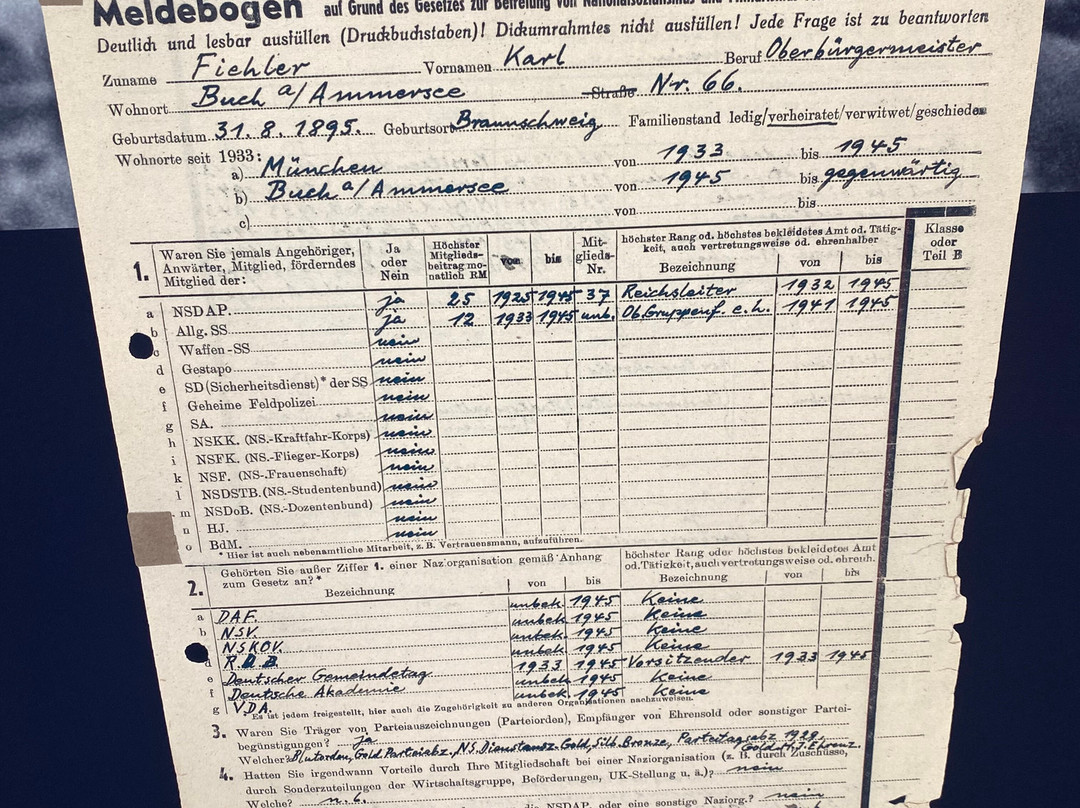 Meldebogen auf Grund des Gesetzes zur Befreiung von Nationalsozialismus und
Deutlich und lesbar ausfüllen (Druckbuchstaben)! Dickumrahmtes nicht ausfüllen! Jede Frage ist zu beantworten
Zuname Fiehler Vornamen Karl Beruf Oberbürgermeister
Wohnort Buch a/Ammersee Straße Nr. 66.
Geburtsdatum 31.8.1895. Geburtsort Braunschweig Familienstand ledig/verheiratet/verwitwet/geschieden
Wohnorte seit 1933:
a) München von 1933 bis 1945
b) Buch a/Ammersee von 1945 bis gegenwärtig
c) von bis
1. Waren Sie jemals Angehöriger, Anwärter, Mitglied, förderndes Mitglied der: Ja oder Nein Höchster Mitgliedsbeitrag monatlich RM von bis Mitglieds-Nr. höchster Rang od. höchstes bekleidetes Amt od. Tätigkeit, auch vertretungsweise od. ehrenhalber Bezeichnung von bis Klasse oder Teil B
a NSDAP. ja 25 1925 1945 37 Reichsleiter 1932 1945
b Allg. SS ja 12 1933 1945 unb. Ob.Gruppenf. e.h. 1941 1945
c Waffen-SS nein
d Gestapo nein
e SD (Sicherheitsdienst)* der SS nein
f Geheime Feldpolizei nein
g SA. nein
h NSKK. (NS.-Kraftfahr-Korps) nein
i NSFK. (NS.-Flieger-Korps) nein
k NSF. (NS-Frauenschaft) nein
l NSDSTB. (NS.-Studentenbund) nein
m NSDoB. (NS.-Dozentenbund) nein
n HJ. nein
o BdM. nein
* Hier ist auch nebenamtliche Mitarbeit, z.B. Vertrauensmann, aufzuführen.
2. Gehörten Sie außer Ziffer 1. einer Naziorganisation gemäß Anhang zum Gesetz an?* Bezeichnung von bis höchster Rang oder höchstes bekleidetes Amt od. Tätigkeit, auch vertretungsweise od. ehrenh. Bezeichnung von bis
a DAF. unbek. 1945 Keine
b NSV. unbek. 1945 Keine
NSKOV. unbek. 1945 Keine
d R.D.B. unbek. 1945 Keine
e Deutscher Gemeindetag 1933 1945 Vorsitzender 1933 1945
f Deutsche Akademie unbek. 1945 Keine
g V.D.A. unbek. 1945 Keine
Es ist jedem freigestellt, hier auch die Zugehörigkeit zu anderen Organisationen nachzuweisen.
3. Waren Sie Träger von Parteiauszeichnungen (Parteiorden), Empfänger von Ehrensold oder sonstiger Partei-
begünstigungen? ja
Welcher? Blutorden, Gold. Parteiabz., NS. Dienstausz. Gold, Silb. Bronze, Parteitagsabz. 1929, Gold. H.J. Ehrenz.
4. Hatten Sie irgendwann Vorteile durch Ihre Mitgliedschaft bei einer Naziorganisation (z. B. durch Zuschüsse,
durch Sonderzuteilungen der Wirtschaftsgruppe, Beförderungen, UK-Stellung u. ä.)? nein
Welche?
die NSDAP. oder eine sonstige Naziorg.? nein